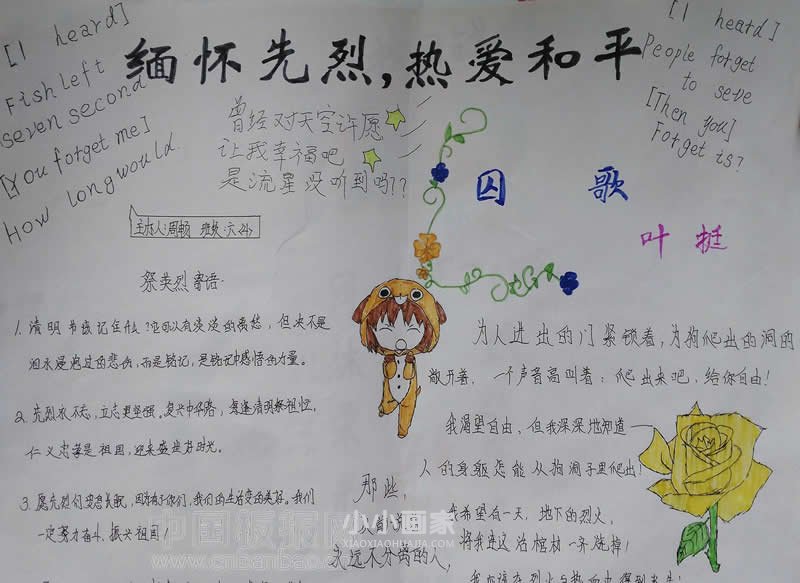 缅怀先烈,热爱和平
[I heard]
Fish left
seven second
[You forget me]
How long would
[I heard]
People forget
to seve
[Then you]
Forget is?
曾经对天空许愿
让我幸福吧
是流星没听到吗??
囚歌
叶挺
祭英烈寄语
1. 清明节惦记住什么?它可以有淡淡的哀愁，但决不是
泪水浸泡过的悲伤，而是铭记，是铭记中感悟的力量。
2. 先烈永不忘，立志更坚强。复兴中华路，每逢清明祭祖忙。
仁义忠孝是祖国，迎来盛世好时光。
3. 愿先烈们安息长眠，因为有了你们，我们的生活变的美好。我们
一定努力奋斗，振兴祖国！
为人进出的门紧锁着，为狗爬出的洞
敞开着，一个声音高叫着：爬出来吧，给你自由！
我渴望自由，但我深深地知道——
人的身躯怎能从狗洞子里爬出！
我希望有一天，地下的烈火，
将我连这活棺材一齐烧掉！
那些，
永远不分离的人，
中国板报网
www.cnbanbao.cn
小小画家
XIAOXIAOHUAJIA.COM